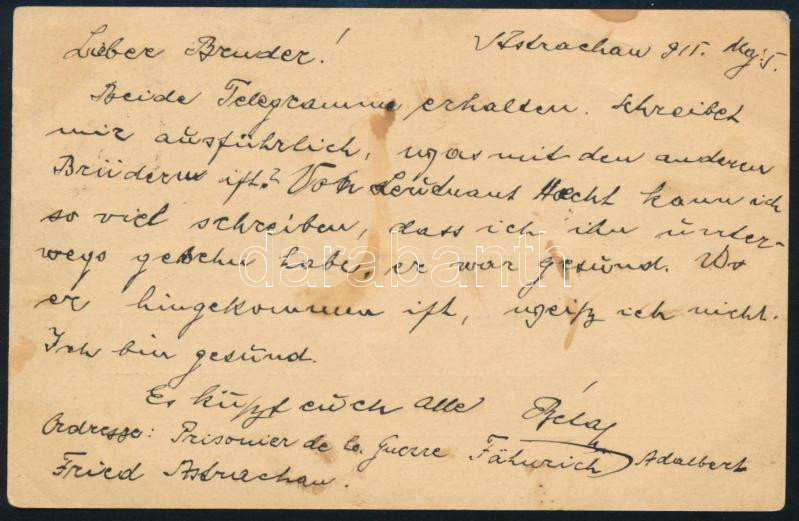 Astrachan 915. Maj. 5.
Lieber Bruder!
Beide Telegramme erhalten. Schreibet
mir ausführlich, was mit den anderen
Brüdern ist? Von Leutnant Hecht kann ich
so viel schreiben, dass ich ihn unter-
wegs gesehn habe, er war gesund. Wo
er hingekommen ist, weiß ich nicht.
Ich bin gesund.
Es küßt euch alle Béla
Adresse: Prisonier de la Guerre Fähnrich Adalbert
Fried Astrachan.
darabanth